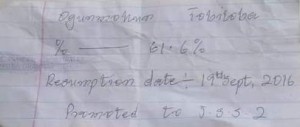 Ogunmokun Tobiloba
% —— 61.6%
Resumption date:- 19th Sept, 2016
Promoted to J.S.S 2